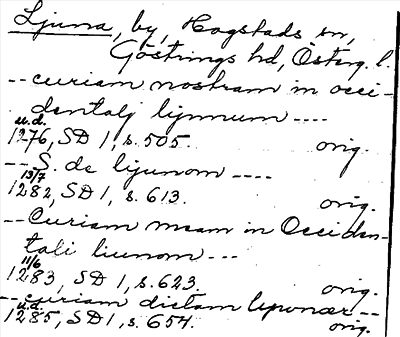 Ljuna, by, Hogstads sn,
Göstrings hd, Österg. l.
-- curiam nostram in occi-
dentalj lijnnum ----
u.d.
1276, SD 1, s. 505. orig.
-- S. de lijunom ----
13/7
1282, SD 1, s. 613. orig.
-- Curiam meam in Occiden-
tali liunom ---
11/6
1283, SD 1, s. 623. orig.
-- curiam dictam lyponær --
u.d.
1285, SD 1, s. 654. orig.